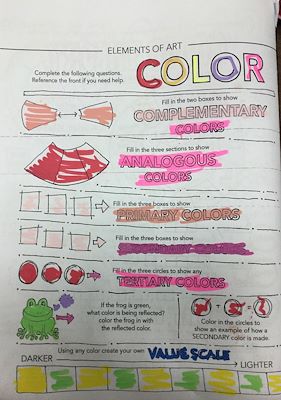 ELEMENTS OF ART
COLOR
Complete the following questions.
Reference the front if you need help.
Fill in the two boxes to show
COMPLEMENTARY
COLORS
Fill in the three sections to show
ANALOGOUS
COLORS
Fill in the three boxes to show
PRIMARY COLORS
Fill in the three boxes to show
SECONDARY COLORS
Fill in the three circles to show any
TERTIARY COLORS
If the frog is green,
what color is being reflected?
color the frog in with
the reflected color.
Color in the circles to
show an example of how a
SECONDARY color is made.
Using any color create your own VALUE SCALE
DARKER
LIGHTER